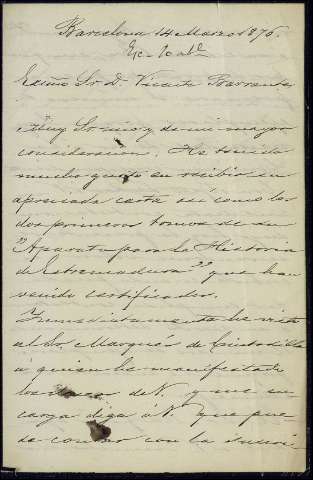 Barcelona 14 Marzo 1876.
Excmo Sr. D. Vicente Barrantes
Muy Sr. mio y de mi mayor
consideracion. He tenido
mucho gusto en recibir su
apreciada carta asi como los
dos primeros tomos de su
"Aparato para la Historia
de Extremadura" que han
venido certificados.
Inmediatamente he visto
al Sr. Marqués de Ciutadilla
á quien he manifestado
los deseos de V. y me en
carga diga á V. que pue-
de contar con la suscri-